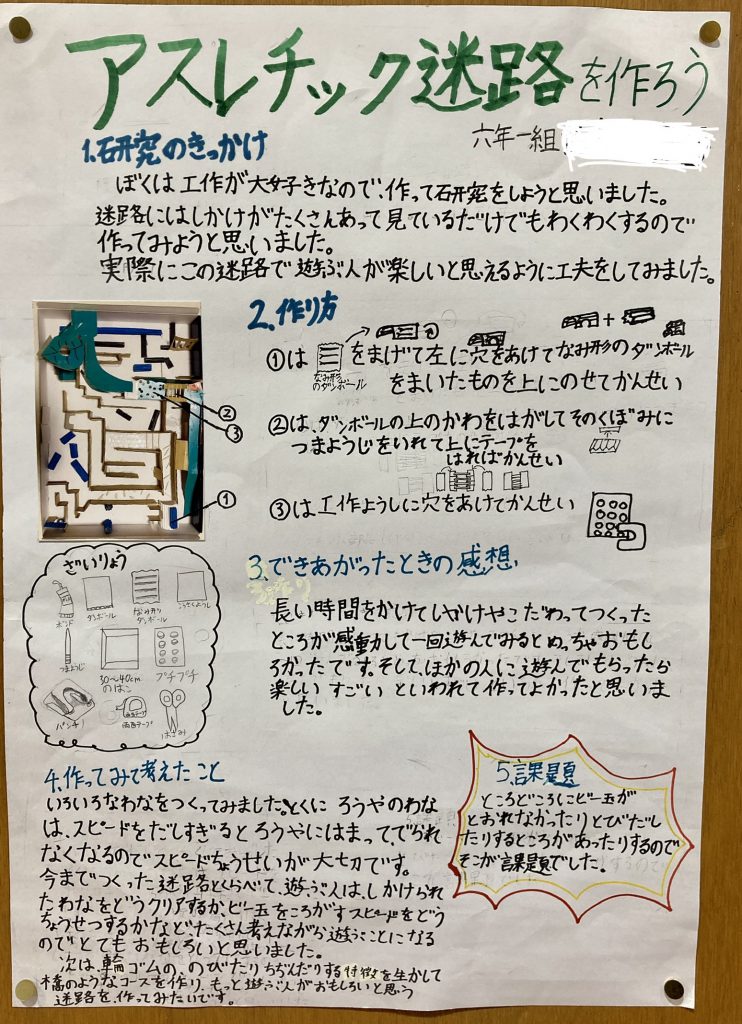 アスレチック迷路を作ろう
六年一組
1.研究のきっかけ
ぼくは工作が大好きなので、作って研究をしようと思いました。
迷路にはしかけがたくさんあって見ているだけでもわくわくするので
作ってみようと思いました。
実際にこの迷路で遊ぶ人が楽しいと思えるように工夫をしてみました。
2.作り方
①は をまげて左に穴をあけてなみ形のダンボール
なみ形のダンボール
をまいたものを上にのせてかんせい
②は、ダンボールの上のかわをはがしてそのくぼみに
つまようじをいれて上にテープを
はればかんせい
③は工作ようしに穴をあけてかんせい
②
③
①
ざいりょう
ボンド
ダンボール
なみ形りダンボール
こうさくようし
つまようじ
30〜40cmのはこ
プチプチ
パンチ
両面テープ
はさみ
3.できあがったときの感想
長い時間をかけてしかけやこだわってつくった
ところが感動して一回遊んでみるとめっちゃおもし
ろかったです。そして、ほかの人に遊んでもらったら
楽しい すごい といわれて作ってよかったと思いま
した。
4.作ってみて考えたこと
いろいろなわなをつくってみました。とくに ろうやのわな
は、スピードをだしすぎると ろうやにはまって、でられ
なくなるのでスピードちょうせいが大切です。
今までつくった迷路とくらべて、遊ぶ人は、しかけられ
たわなをどうクリアするか、ビー玉をころがすスピードをどう
ちょうせつするかなど、たくさん考えながら遊ぶことになる
のでとてもおもしろいと思いました。
次は、輪ゴムの、のびたりちぢんだりする特徴を生かして
橋のようなコースを作り、もっと遊ぶ人がおもしろいと思う
迷路を、作ってみたいです。
5.課題
ところどころにビー玉が
とおれなかったりとびだし
たりするところがあったりするので
そこが課題でした。